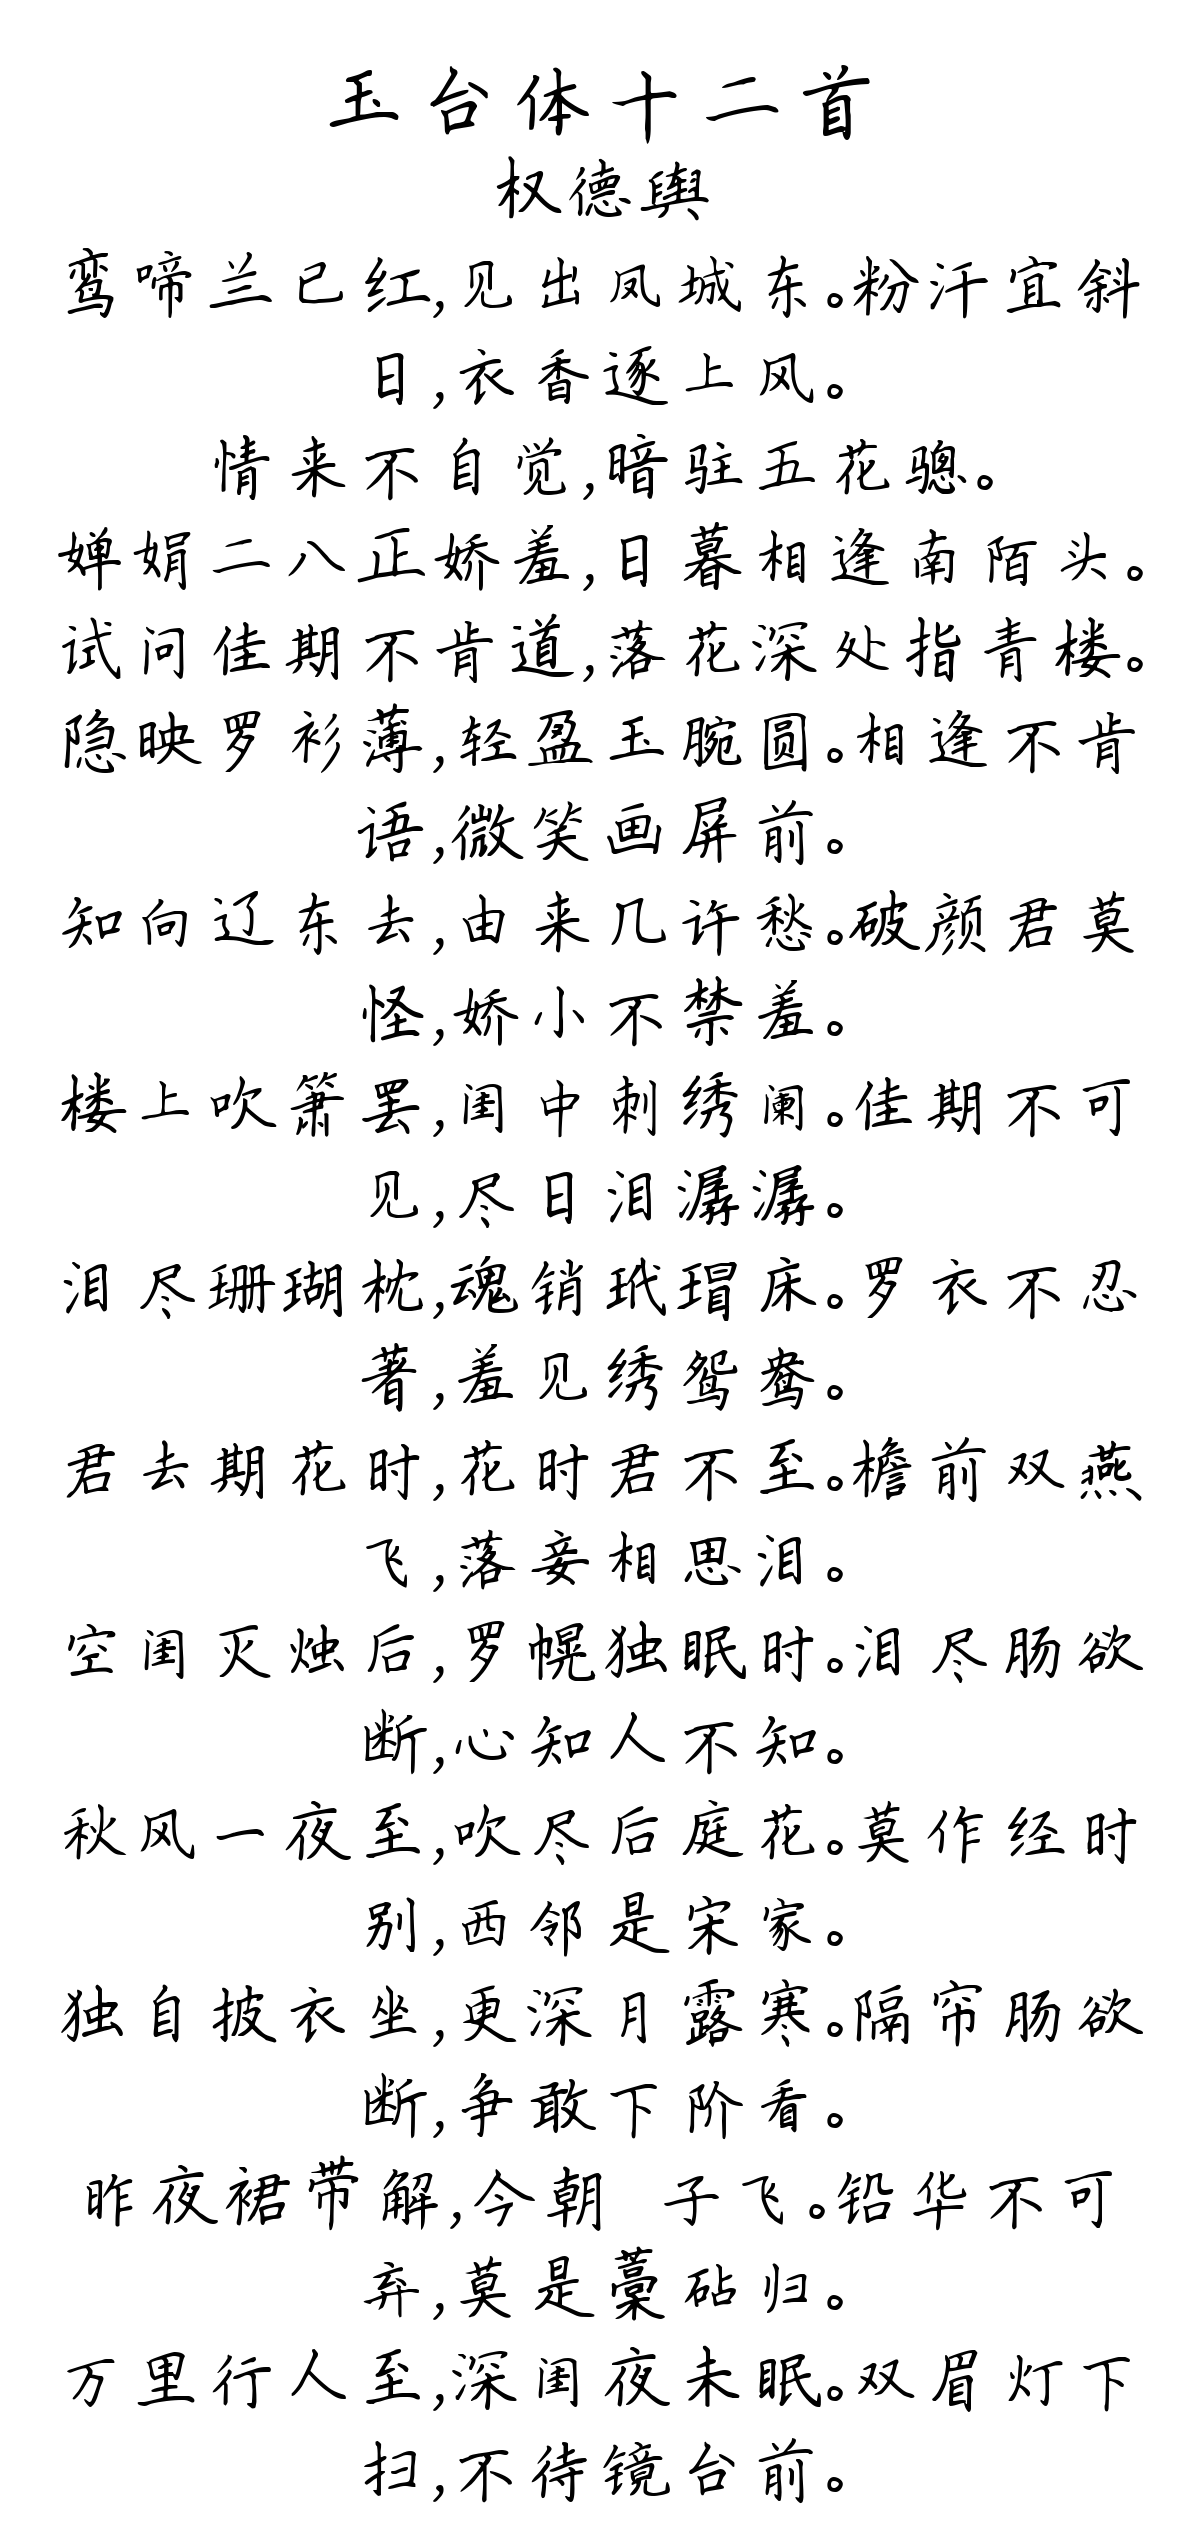 玉台体十二首
权德舆
鸾啼兰已红,见出凤城东。粉汗宜斜
日,衣香逐上风。
情来不自觉,暗驻五花骢。
婵娟二八正娇羞,日暮相逢南陌头。
试问佳期不肯道,落花深处指青楼。
隐映罗衫薄,轻盈玉腕圆。相逢不肯
语,微笑画屏前。
知向辽东去,由来几许愁。破颜君莫
怪,娇小不禁羞。
楼上吹箫罢,闺中刺绣阑。佳期不可
见,尽日泪潺潺。
泪尽珊瑚枕,魂销玳瑁床。罗衣不忍
著,羞见绣鸳鸯。
君去期花时,花时君不至。檐前双燕
飞,落妾相思泪。
空闺灭烛后,罗幌独眠时。泪尽肠欲
断,心知人不知。
秋风一夜至,吹尽后庭花。莫作经时
别,西邻是宋家。
独自披衣坐,更深月露寒。隔帘肠欲
断,争敢下阶看。
昨夜裙带解,今朝 子飞。铅华不可
弃,莫是藁砧归。
万里行人至,深闺夜未眠。双眉灯下
扫,不待镜台前。